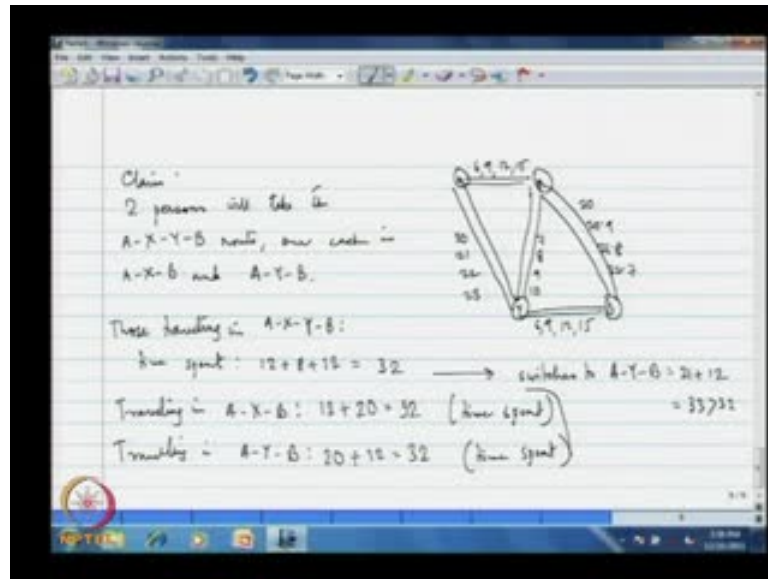 Claim:
2 persons will take the
A-X-Y-B route, one each in
A-X-B and A-Y-B.
Those travelling in A-X-Y-B:
time spent: 12+8+12 = 32 → switches to A-Y-B = 21+12
= 33>32
Traveling in A-X-B: 12+20=32 (time spent)
Travelling in A-Y-B: 20+12=32 (time spent)
6,9,12,15
20
20.9
21.8
22.7
20
21
22
23
7
8
9
10
6,9,12,15
Y
NPTEL